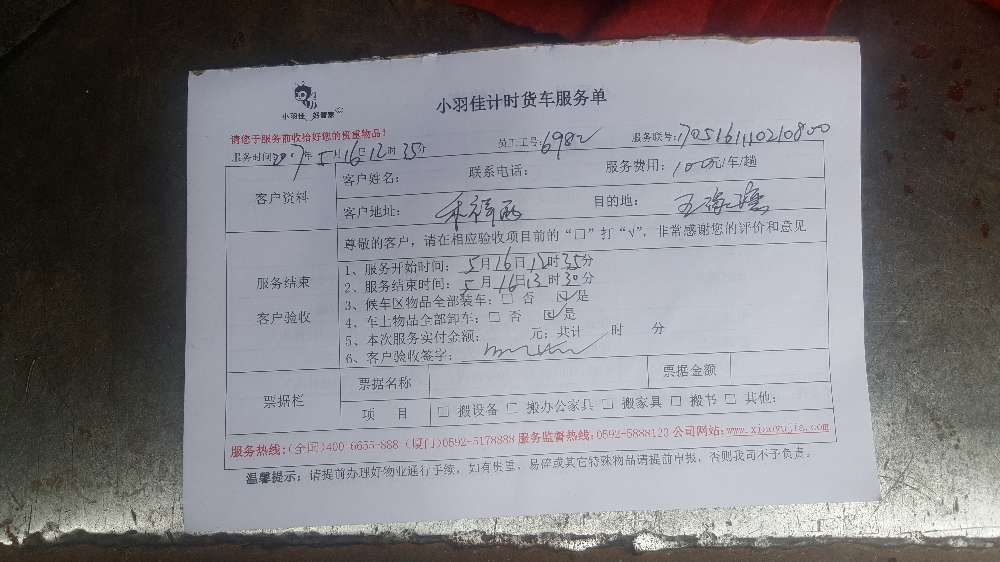 小羽佳 好管家
小羽佳计时货车服务单
请您于服务前收拾好您的贵重物品！
员工工号：6982 服务联号：1705161110210800
服务时间 年5月16日12时35分
客户资料 客户姓名： 联系电话： 服务费用：100元/车/趟
客户地址： 目的地：
尊敬的客户，请在相应验收项目前的“口”打“√”，非常感谢您的评价和意见
服务结束
客户验收
1、服务开始时间：5月16日12时35分
2、服务结束时间：5月16日13时30分
3、候车区物品全部装车：□ 否 ☑是
4、车上物品全部卸车：□ 否 ☑是
5、本次服务实付金额： 元；共计 时 分
6、客户验收签字：
票据栏 票据名称 票据金额
项 目 □ 搬设备 □ 搬办公家具 □ 搬家具 □ 搬书 □ 其他：
服务热线：(全国)400-6655-888 (厦门)0592-5178888 服务监督热线：0592-5888123 公司网站：www.xiaoyujia.com
温馨提示：请提前办理好物业通行手续，如有贵重、易碎或其它特殊物品请提前申报，否则我司不予负责。